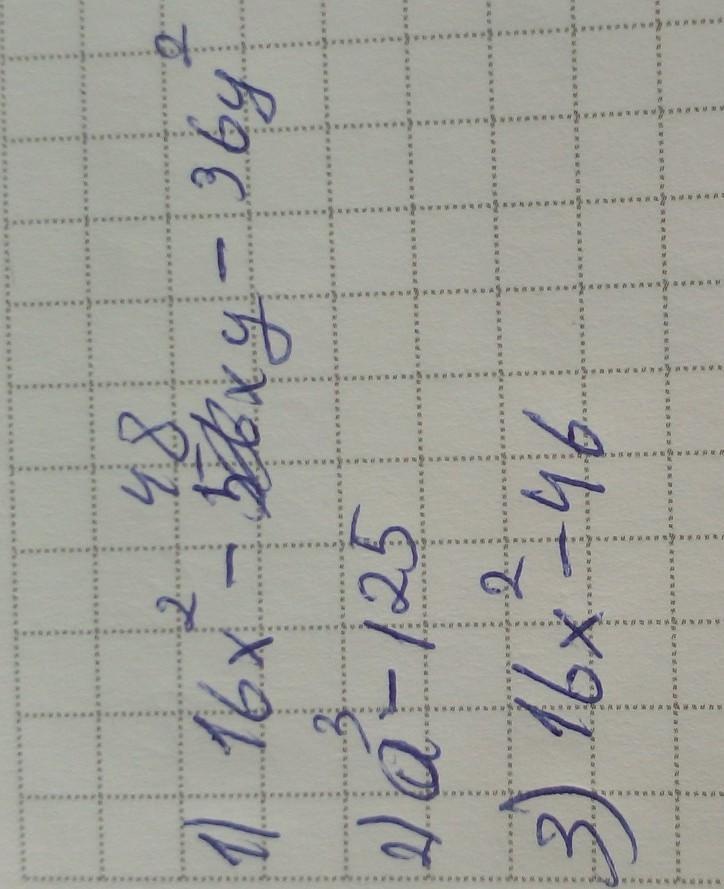 1) 16x² - 48xy - 36y²
2) a³ - 125
3) 16x² - 46